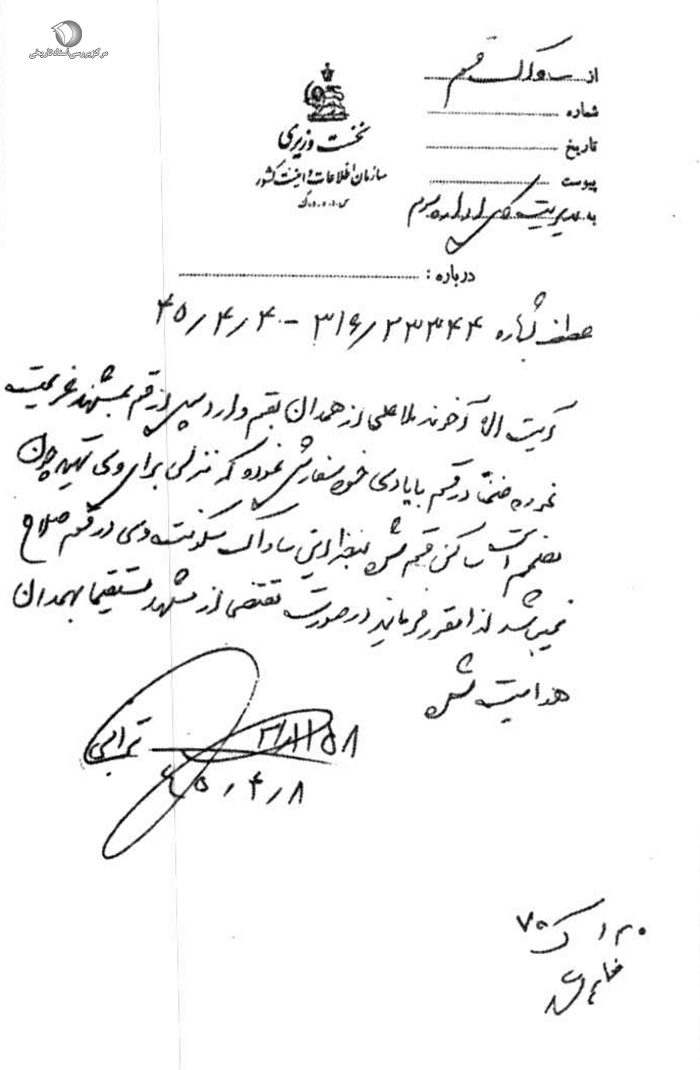 مرکز بررسی اسناد تاریخی
از ساواک قم
شماره
تاریخ
پیوست
به مدیریت کل اداره سوم
نخست وزیری
سازمان اطلاعات و امنیت کشور
س.ا.و.ا.ک
درباره :
عطف بشماره ۳۱۶/۲۳۳۴۴ - ۴۵/۴/۴
آیت اله آخوند ملاعلی از همدان بقم وارد و سپس از قم بمشهد عزیمت
نموده ضمناً در قم بایادی خود سفارش نموده که منزلی برای وی تهیه چون
تصمیم است ساکن قم شود بنظر این ساواک سکونت وی در قم صلاح
نمیباشد لذا مقرر فرمائید در صورت مقتضی از مشهد مستقیما بهمدان
هدایت شود
ترابی
۴۵/۴/۸